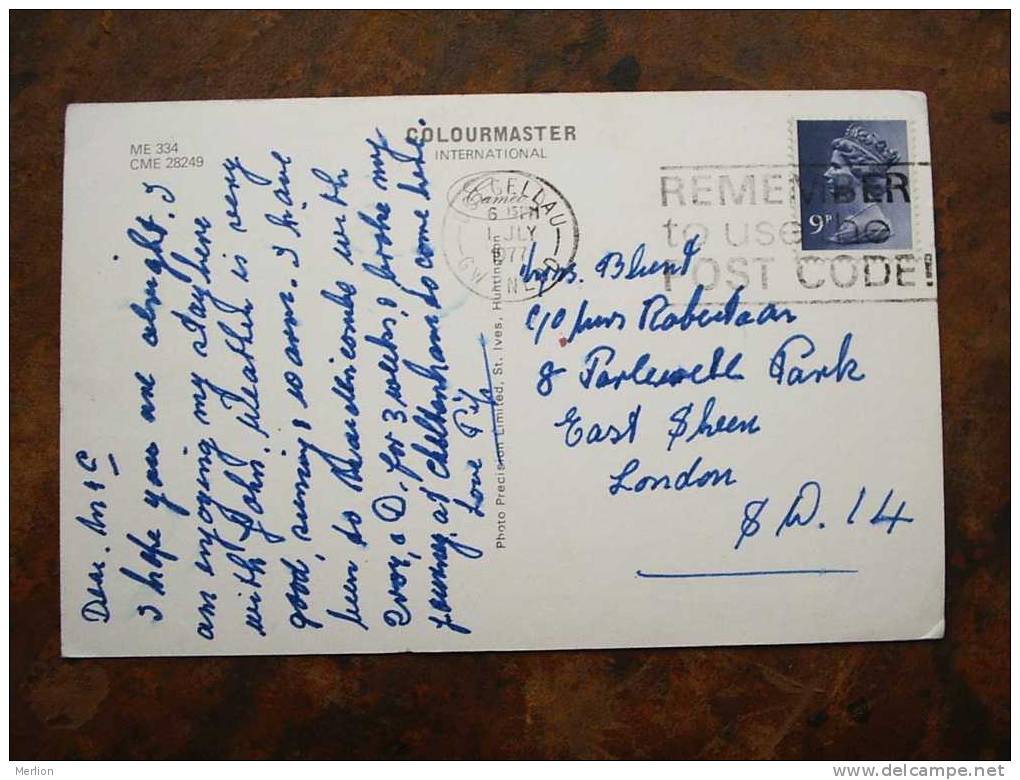 ME 334
CME 28249
COLOURMASTER
INTERNATIONAL
Cameo
DOLGELLAU
6 15PM
1 JLY
1977
GWYNEDD
REMEMBER
to use the
POST CODE!
9P
Photo Precision Limited, St. Ives, Huntingdon
Dear M & C
I hope you are alright. I
am enjoying my stay here
with John. Weather is very
good, sunny & warm. I have
been to with
Ivory, & D. for 3 weeks, I broke my
journey at Cheltenham to come here.
Love
Mrs. Blunt
c/o Mrs Robertson
8 Park
East Sheen
London
S W. 14
Merlion
delcampe.net